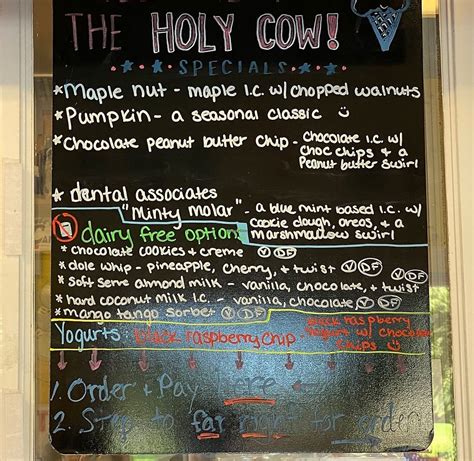 THE HOLY COW!
SPECIALS
*Maple nut - maple i.c. w/ chopped walnuts
*Pumpkin - a seasonal classic
*Chocolate peanut butter chip - Chocolate i.c. w/
choc chips & a
Peanut butter swirl
* dental associates
"Minty Molar" - a blue mint based i.c. w/
cookie dough, oreos, & a
marshmallow swirl
dairy free options
* chocolate cookies & creme V DF
*dole whip - pineapple, cherry, & twist V DF
* soft serve almond milk - vanilla, chocolate, & twist
* hard coconut milk i.c. - vanilla, chocolate V DF
*mango tango sorbet V DF
Yogurts: black raspberry chip - black raspberry
yogurt w/ chocolate
chips
1. Order + Pay here
2. Step to far right for order